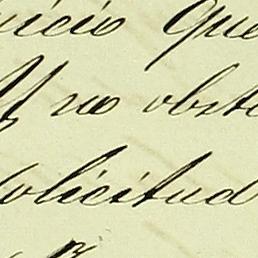 uicio que
Y no obst
solicitud